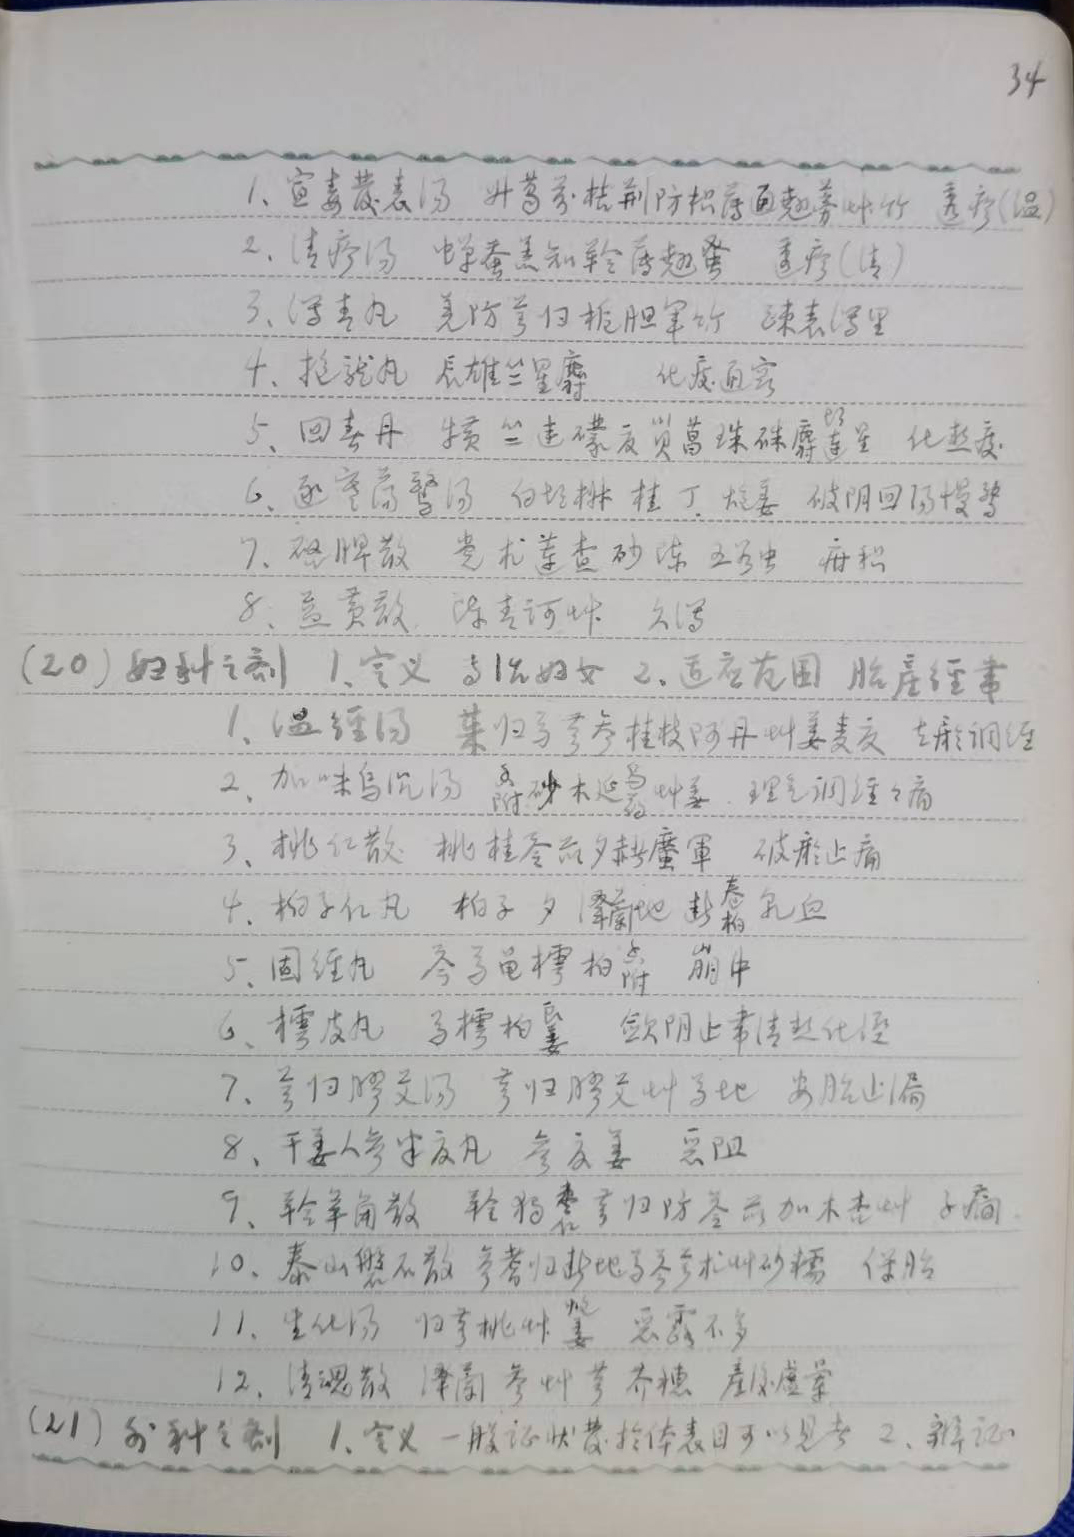 34
1、宣毒发表汤 升葛前桔荆防枳薄通翘蒡艸竹 透疹(温)
2、清疹汤 蝉蚕羔知羚薄翘蚤 透疹(清)
3、泻青丸 羌防芎归栀胆军竹 疎表泻里
4、抱龙丸 辰雄竺星麝 化痰通窍
5、回春丹 犊竺连礞夏贝菖珠硃麝星 化热痰
6、逐寒荡惊汤 白椒桂丁炮姜 破阴回阳慢惊
7、启脾散 党术莲查砂陈五谷虫 疳积
8、益黄散 陈青诃艸 久泻
(20)妇科之剂 1、定义 专治妇女 2、适应范围 胎产经带
1、温经汤 茱归芍芎参桂枝阿丹艸姜麦夏 去瘀调经
2、加味乌沉汤 香附砂木延乌药艸姜 理气调经止痛
3、桃仁散 桃桂苓夕赤䗪军 破瘀止痛
4、柏子仁丸 柏子夕泽兰地断卷柏
5、固经丸 芩芍龟樗柏香附 崩中
6、樗皮丸 芍樗柏良姜 敛阴止带清热化湿
7、芎归胶艾汤 芎归胶艾艸芍地 安胎止漏
8、干姜人参半夏丸 参夏姜 恶阻
9、羚羊角散 羚独枣仁芎归防苓加木杏艸 子痫
10、泰山磐石散 参耆归断地芍芩芎术艸砂糯 保胎
11、生化汤 归芎桃艸炮姜 恶露不多
12、清魂散 泽兰参艸芎芥穗 产后虚晕
(21)外科之剂 1、定义 一般证状发于体表目可以见者 2、辨证